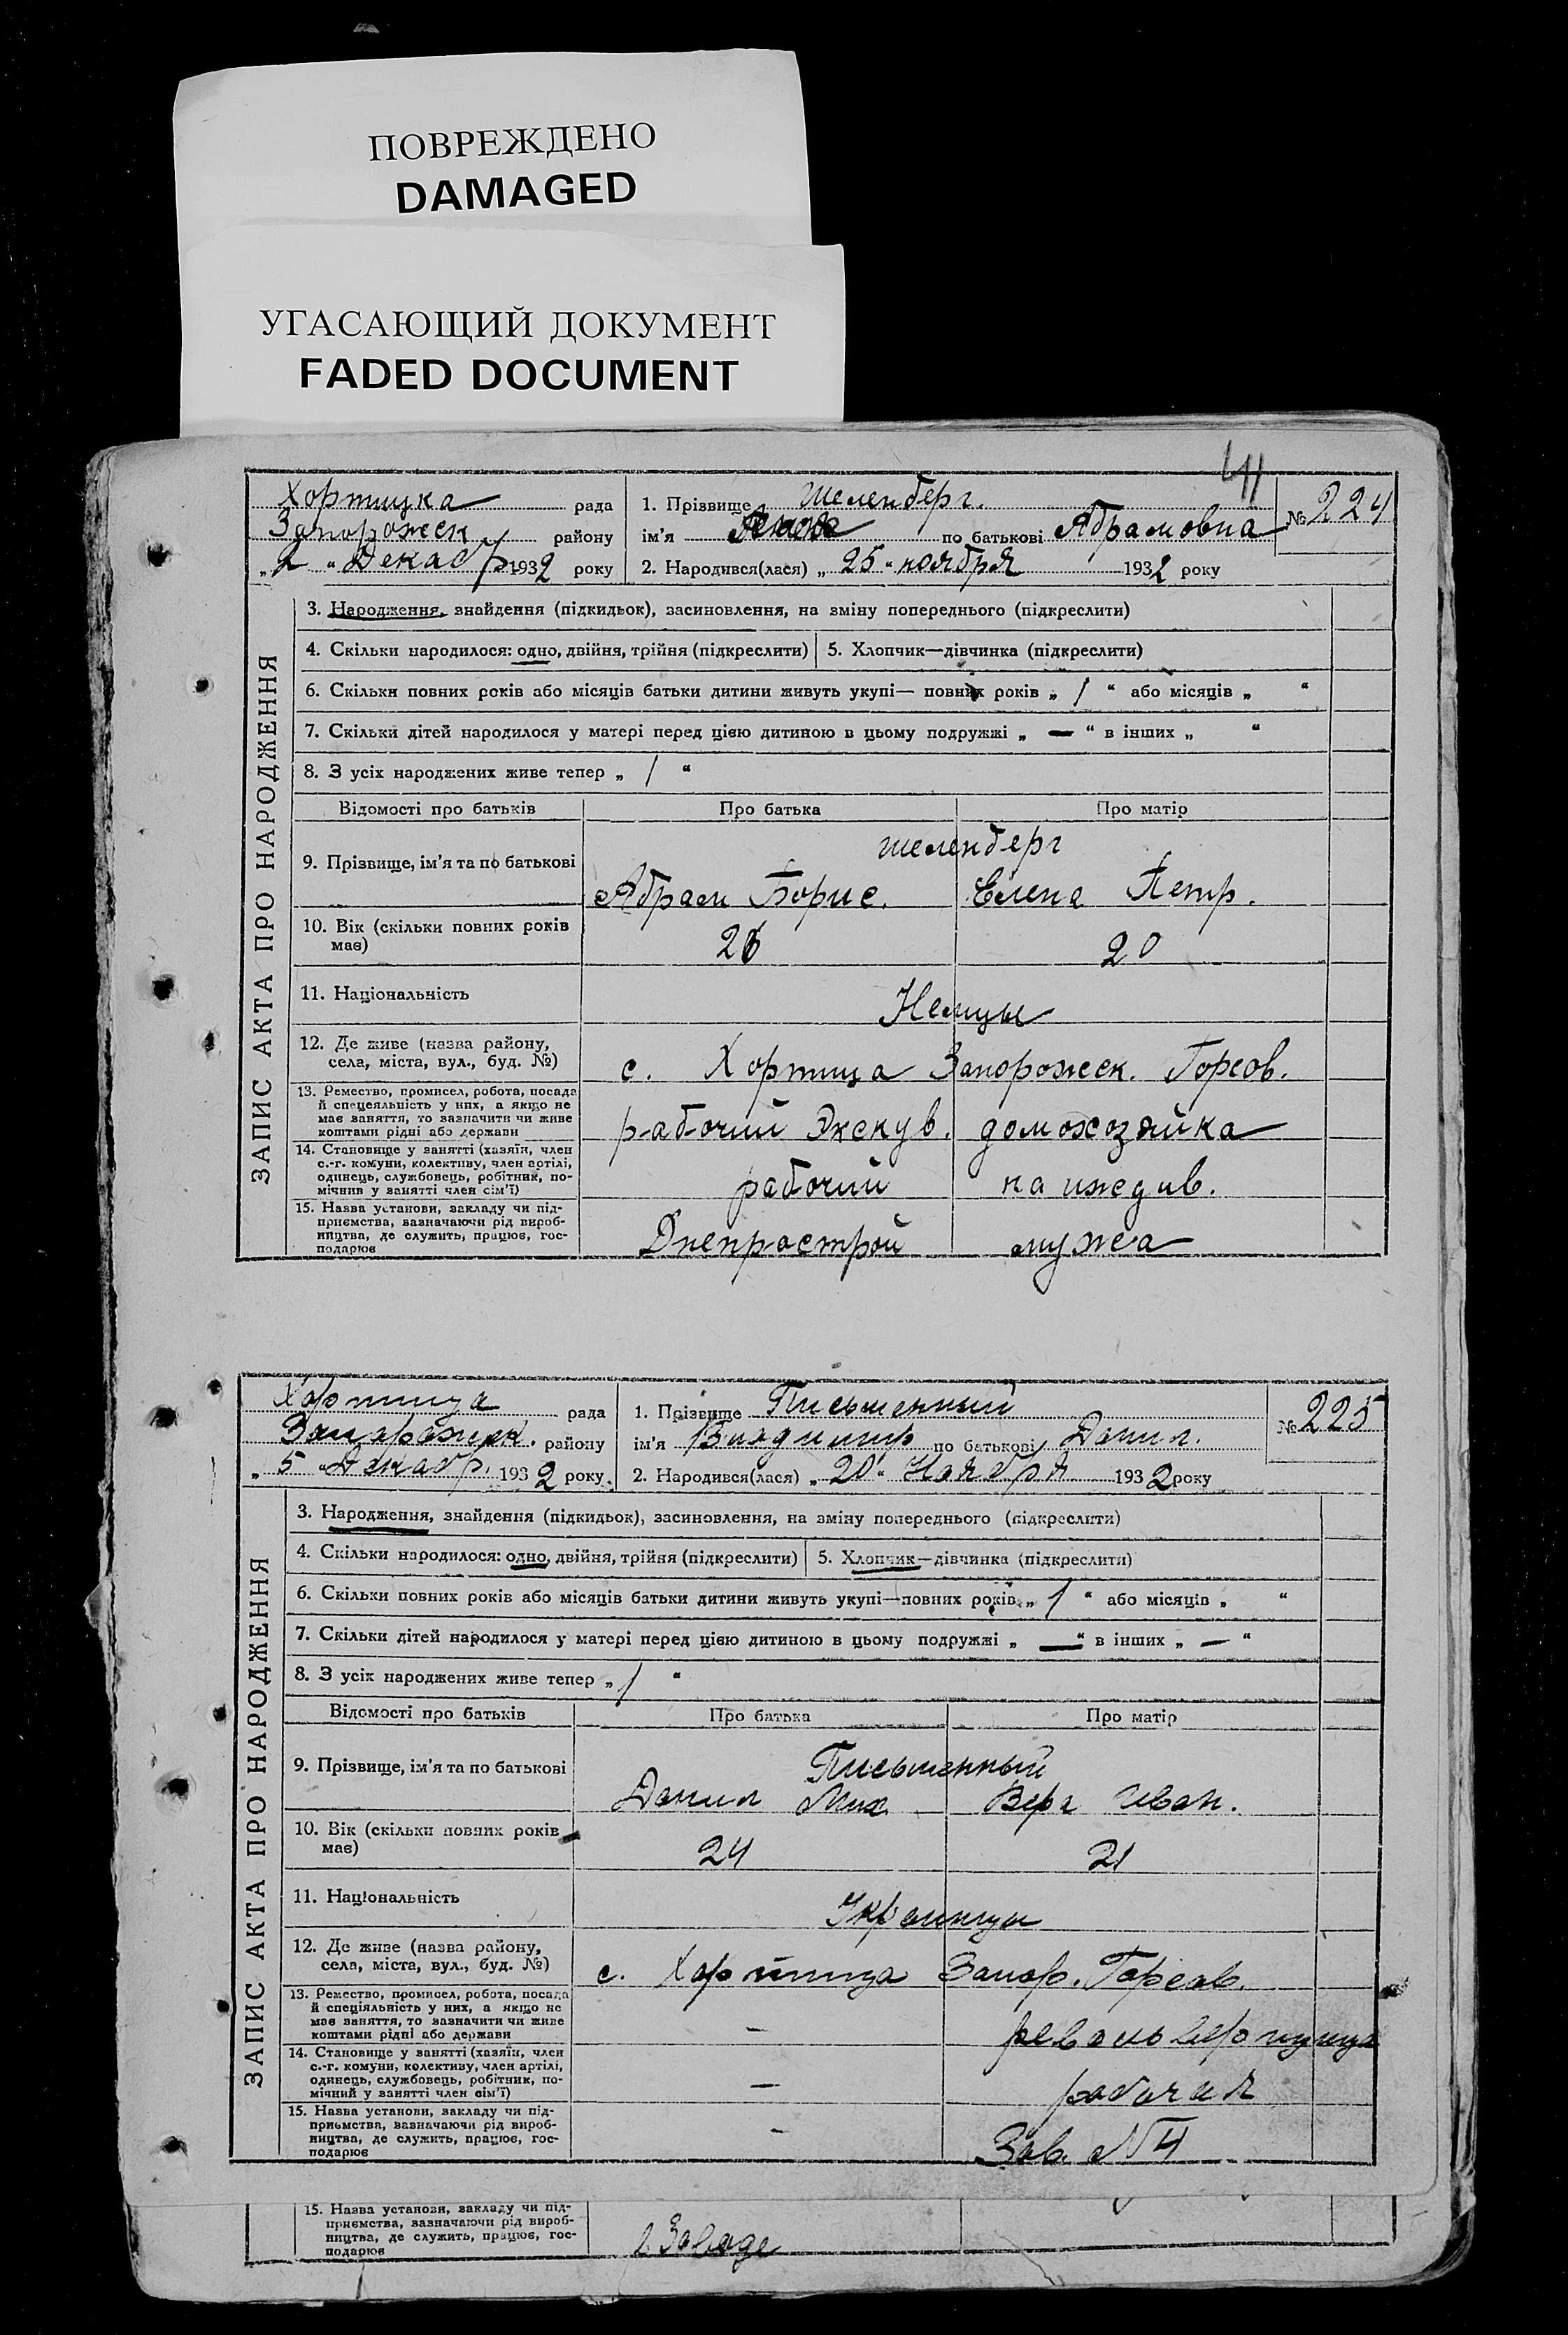 ПОВРЕЖДЕНО
DAMAGED
УГАСАЮЩИЙ ДОКУМЕНТ
FADED DOCUMENT
41
Хортицка рада
Запорожск району
„ 2 “ Декабр 1932 року
1. Прізвище Шеленберг.
ім'я по батькові Абрамовна
2. Народився(лася) „ 25 “ ноября 1932 року
№ 224
ЗАПИС АКТА ПРО НАРОДЖЕННЯ
3. Народження, знайдення (підкидьок), засиновлення, на зміну попереднього (підкреслити)
4. Скільки народилося: одно, двійня, трійня (підкреслити) 5. Хлопчик—дівчинка (підкреслити)
6. Скільки повних років або місяців батьки дитини живуть укупі— повних років „ 1 “ або місяців „ “
7. Скільки дітей народилося у матері перед цією дитиною в цьому подружжі „ — “ в інших „ “
8. З усіх народжених живе тепер „ 1 “
Відомості про батьків Про батька Про матір
9. Прізвище, ім'я та по батькові
Шеленберг
Абрам Борис. Елена Петр.
10. Вік (скільки повних років
має)
26 20
11. Національність
Немцы
12. Де живе (назва району,
села, міста, вул., буд. №)
с. Хортица Запорожск. Горсов.
13. Ремество, промисел, робота, посада
й спецеяльність у них, а якщо не
має заняття, то зазначити чи живе
коштами рідні або держави
рабочий Экскув. домохозяйка
14. Становище у занятті (хазяїн, член
с.-г. комуни, колективу, член артілі,
одинець, службовець, робітник, по-
мічник у занятті член сім'ї)
рабочий на иждив.
15. Назва установи, закладу чи під-
приємства, зазначаючи рід вироб-
ництва, де служить, працює, гос-
подарює
Днепрострой мужа
Хортица рада
Запорожск. району
„ 5 “ Декабр. 1932 року.
1. Прізвище Письменный
ім'я Владимир по батькові Данил.
2. Народився(лася) „ 20 “ Ноября 1932 року
№ 225
ЗАПИС АКТА ПРО НАРОДЖЕННЯ
3. Народження, знайдення (підкидьок), засиновлення, на зміну попереднього (підкреслити)
4. Скільки народилося: одно, двійня, трійня (підкреслити) 5. Хлопчик—дівчинка (підкреслити)
6. Скільки повних років або місяців батьки дитини живуть укупі—повних років „ 1 “ або місяців „ “
7. Скільки дітей народилося у матері перед цією дитиною в цьому подружжі „ — “ в інших „ — “
8. З усіх народжених живе тепер „ 1 “
Відомості про батьків Про батька Про матір
9. Прізвище, ім'я та по батькові
Письменный
Данил Мих. Вера Иван.
10. Вік (скільки повних років
має)
24 21
11. Національність
Украинцы
12. Де живе (назва району,
села, міста, вул., буд. №)
с. Хортица Запор. Горсов.
13. Ремество, промисел, робота, посада
й спеціяльність у них, а якщо не
має заняття, то зазначити чи живе
коштами рідні або держави
— револьверщица
14. Становище у занятті (хазяїн, член
с.-г. комуни, колективу, член артілі,
одинець, службовець, робітник, по-
мічний у занятті член сім'ї)
— рабочая
15. Назва установи, закладу чи під-
приьмства, зазначаючи рід вироб-
ництва, де служить, працює, гос-
подарює
— Зав. №4
15. Назва установи, закладу чи під-
приємства, зазначаючи рід вироб-
ництва, де служить, працює, гос-
подарює
в Заводе